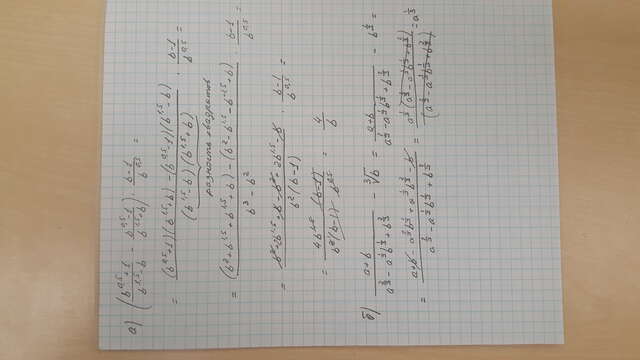 а) (b^0,5+1 / b^1,5-b - b^0,5-1 / b^1,5+b) · b-1 / b^0,5 =
= (b^0,5+1)(b^1,5+b) - (b^0,5-1)(b^1,5-b) / (b^1,5-b)(b^1,5+b) · b-1 / b^0,5 =
разность квадратов
= (b²+b^1,5+b^1,5+b) - (b²-b^1,5-b^1,5+b) / b³-b² · b-1 / b^0,5 =
= b²+2b^1,5+b-b²+2b^1,5-b / b²(b-1) · b-1 / b^0,5 =
= 4b^1,5 (b-1) / b²(b-1) b^0,5 = 4 / b
б) a+b / a^2/3-a^1/3b^1/3+b^2/3 - ∛b = a+b / a^2/3-a^1/3b^1/3+b^2/3 - b^1/3 =
= a+b-a^2/3b^1/3+a^1/3b^2/3-b / a^2/3-a^1/3b^1/3+b^2/3 = a^1/3(a^2/3-a^1/3b^1/3+b^2/3) / (a^2/3-a^1/3b^1/3+b^2/3) = a^1/3